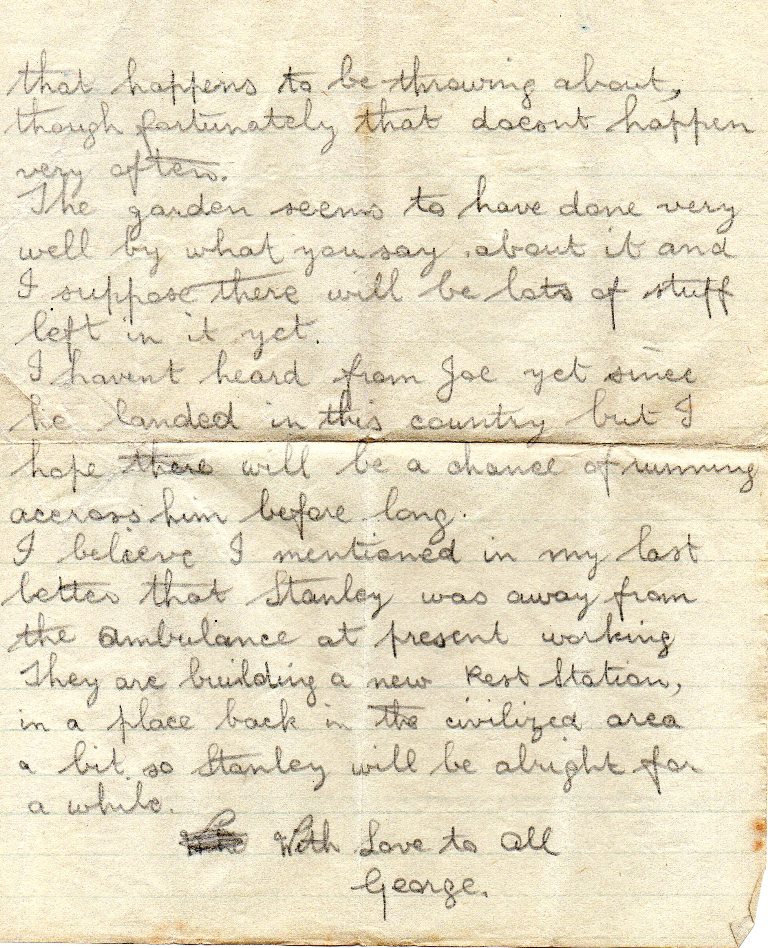 that happens to be throwing about,
though fortunately that doesnt happen
very often.
The garden seems to have done very
well by what you say about it and
I suppose there will be lots of stuff
left in it yet.
I havent heard from Joe yet since
he landed in this country but I
hope there will be a chance of running
accross him before long.
I believe I mentioned in my last
letter that Stanley was away from
the ambulance at present working
They are building a new Rest Station,
in a place back in the civilized area
a bit so Stanley will be alright for
a while.
With Love to All
George.